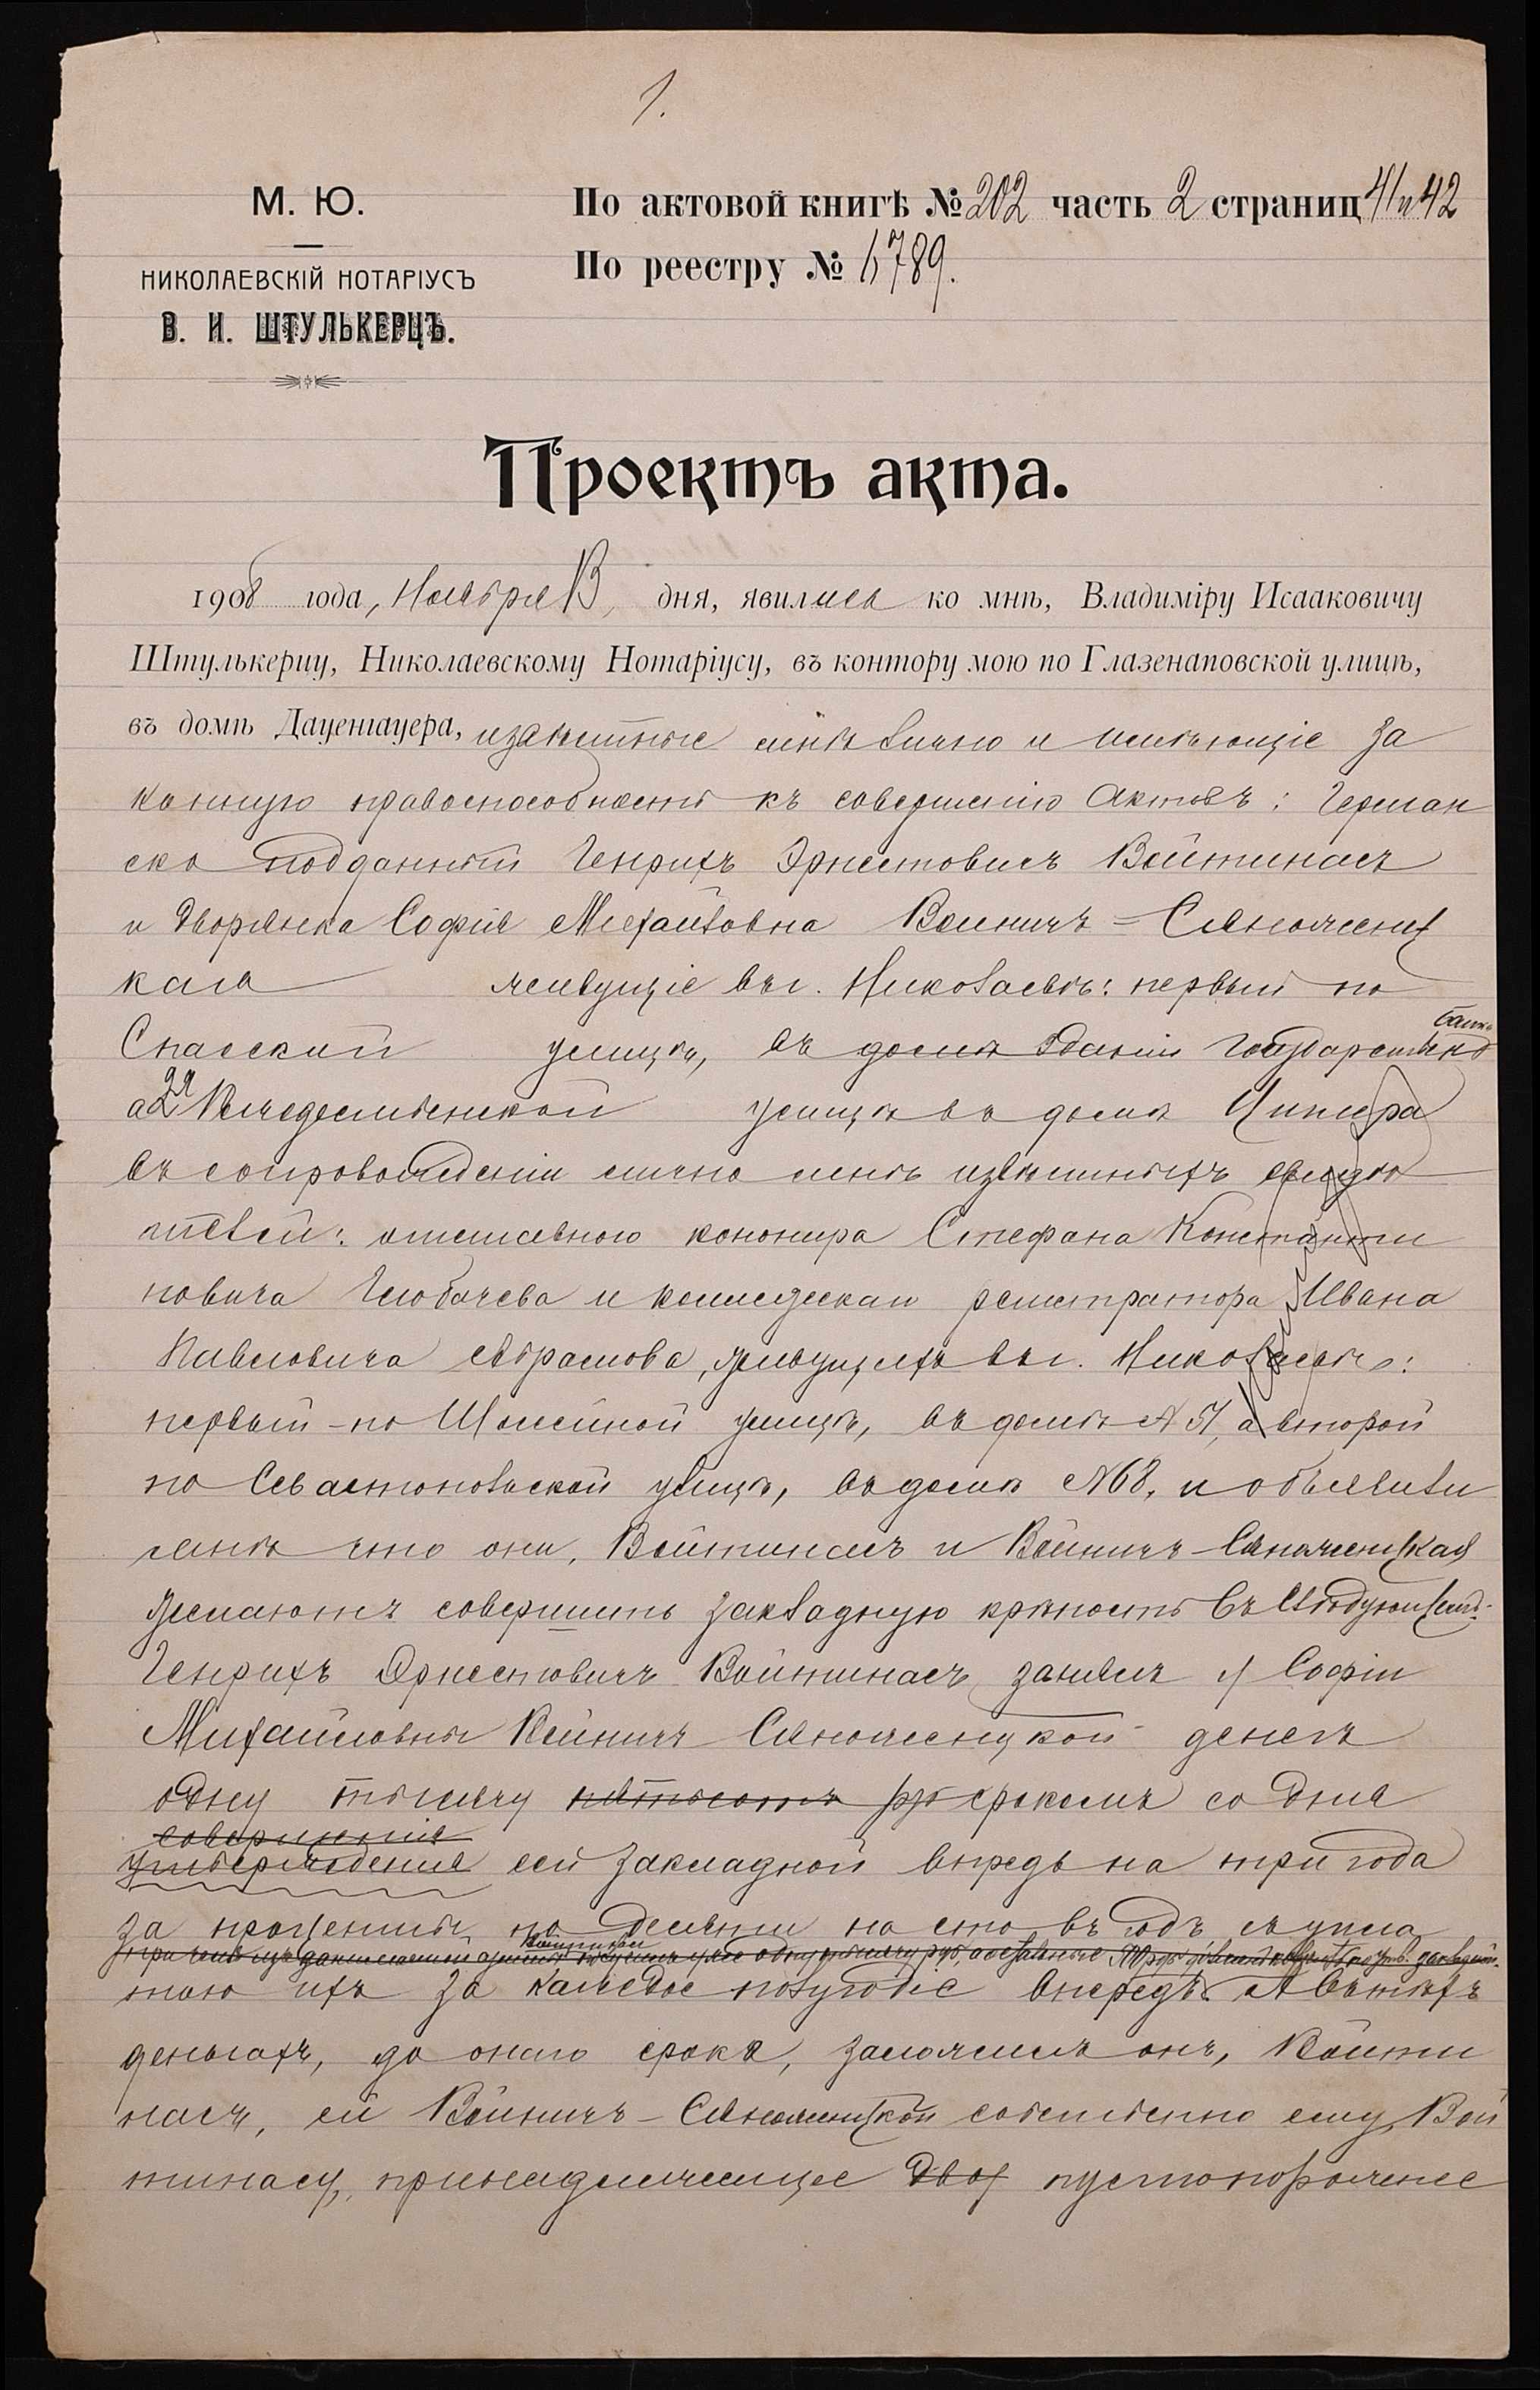 1.
М. Ю.
По актовой книгѣ № 202 часть 2 страниц 41 и 42
По реестру № 6789.
НИКОЛАЕВСКІЙ НОТАРІУСЪ
В. И. ШТУЛЬКЕРЦЪ.
Проектъ акта.
1908 года, Ноября 13, дня, явились ко мнѣ, Владиміру Исааковичу
Штулькерцу, Николаевскому Нотаріусу, въ контору мою по Глазенаповской улицѣ,
въ домѣ Дауенгауера, извѣстные мнѣ лично и имѣющіе за
конную правоспособность къ совершенію актовъ: Герман
ско подданный Генрихъ Эрнестовичъ Войтинасъ
и дворянка Софія Михайловна Войничъ-Сяноженц
кая живущіе въ г. Николаевѣ: первый по
Спасской улицѣ, въ домѣ зданіи Государственно банка
а 2я Рождественской улицѣ въ домѣ
въ сопровожденіи лично мнѣ извѣстныхъ свидѣ
телей: отставного канонира Стефана Константи
новича и коллежскаго регистратора Ивана
Павловича Абрамова, живущихъ въ г. Николаевѣ:
первый - по улицѣ, въ домѣ № 51, а второй
по Севастопольской улицѣ, въ домѣ № 68, и объявили
мнѣ что они, Войтинасъ и Войничъ-Сяноженцкая
желаютъ совершить закладную крѣпость
Генрихъ Эрнестовичъ Войтинасъ занялъ у Софіи
Михайловны Войничъ Сяноженцкой денегъ
одну тысячу пятьсотъ руб срокомъ со дня
совершенія
утвержденія сей закладной впредь на три года
за процентами по десяти на сто въ годъ съ упла
тою ихъ за каждое полугодіе впередъ. А въ тѣхъ
деньгахъ, до онаго срока, заложилъ онъ, Войти
насъ, ей Войничъ-Сяноженцкой собственно ему, Вой
тинасу, принадлежащее двор пустопорожнее